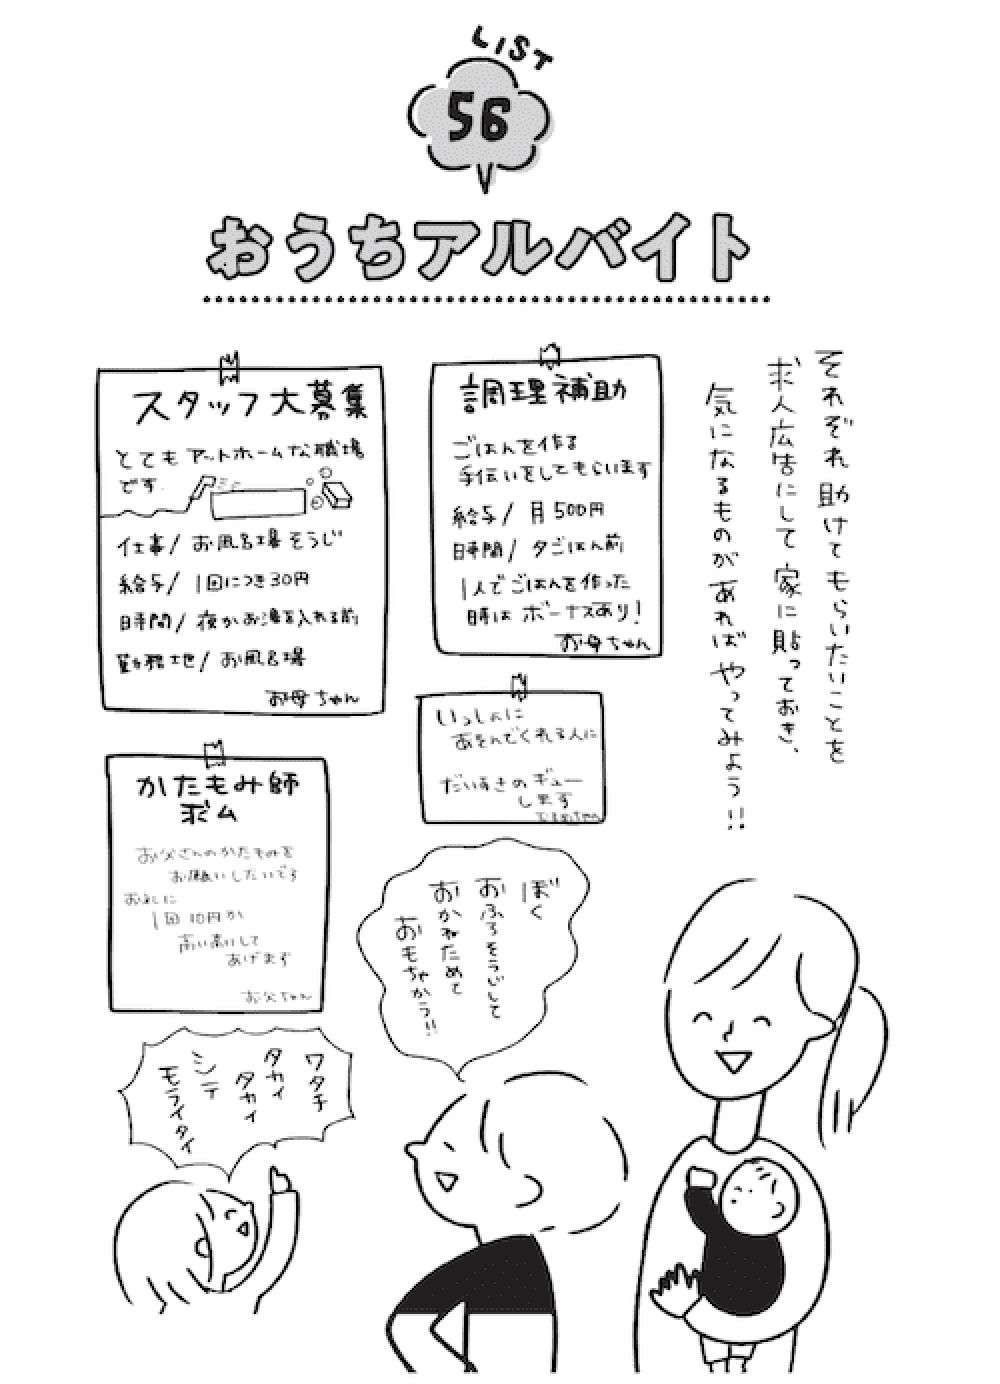 LIST
56
おうちアルバイト
それぞれ助けてもらいたいことを
求人広告にして家に貼っておき、
気になるものがあればやってみよう!!
調理補助
ごはんを作る
手伝いをしてもらいます
給与/月500円
時間/夕ごはん前
1人でごはんを作った
時はボーナスあり!
お母ちゃん
スタッフ大募集
とてもアットホームな職場
です
仕事/お風呂場そうじ
給与/1回につき30円
時間/夜かお湯を入れる前
勤務地/お風呂場
お母ちゃん
いっしょに
あそんでくれる人に
だいすきのギュー
します
かたもみ師
求ム
お父さんのかたもみを
お願いしたいです
おれいに
1回10円か
高い高いして
あげます
お父ちゃん
ぼく
おふろそうじして
おかねためて
おもちゃかう!!
ワタチ
タカイ
タカイ
シテ
モライタイ